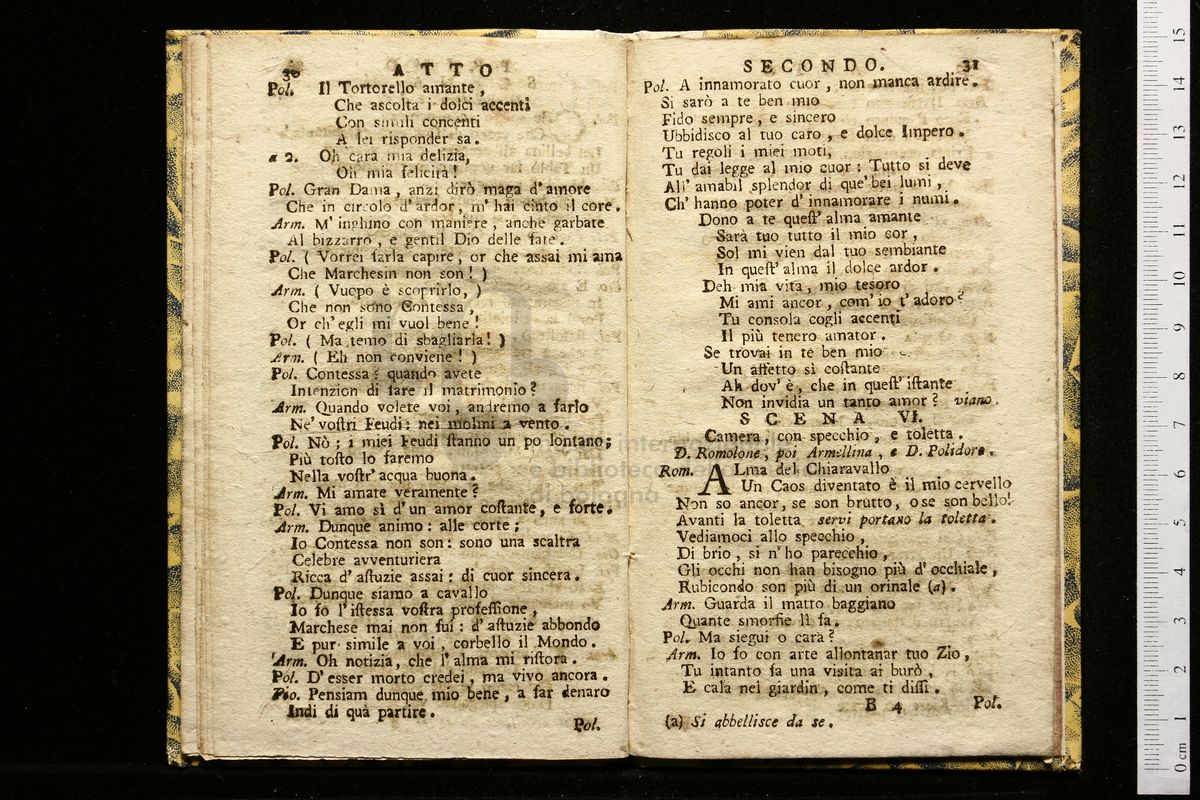 30 ATTO
Pol. Il Tortorello amante,
Che ascolta i dolci accenti
Con simili concenti
A lei risponder sa.
a 2. Oh cara mia delizia,
Oh mia felicità!
Pol. Gran Dama, anzi dirò maga d'amore
Che in circolo d'ardor, m'hai cinto il core.
Arm. M'inchino con maniere, anche garbate
Al bizzarro, e gentil Dio delle fate.
Pol. (Vorrei farla capire, or che assai mi ama
Che Marchesin non son!)
Arm. (Vuopo è scoprirlo,)
Che non sono Contessa,
Or ch'egli mi vuol bene!
Pol. (Ma temo di sbagliarla!)
Arm. (Eh non conviene!)
Pol. Contessa? quando avete
Intenzion di fare il matrimonio?
Arm. Quando volete voi, andremo a farlo
Ne' voſtri Feudi: nei molini a vento.
Pol. Nò; i miei Feudi ſtanno un po lontano;
Più toſto lo faremo
Nella voſtr' acqua buona.
Arm. Mi amate veramente?
Pol. Vi amo sì d'un amor coſtante, e forte.
Arm. Dunque animo: alle corte;
Io Contessa non son: sono una scaltra
Celebre avventuriera
Ricca d'aſtuzie assai: di cuor sincera.
Pol. Dunque siamo a cavallo
Io fo l'iſtessa voſtra profeſſione,
Marchese mai non fui: d'aſtuzie abbondo
E pur simile a voi, corbello il Mondo.
Arm. Oh notizia, che l'alma mi riſtora.
Pol. D'esser morto credei, ma vivo ancora.
Pensiam dunque mio bene, a far denaro
Indi di quà partire.
Pol.
SECONDO. 31
Pol. A innamorato cuor, non manca ardire.
Sì sarò a te ben mio
Fido sempre, e sincero
Ubbidisco al tuo caro, e dolce Impero.
Tu regoli i miei moti,
Tu dai legge al mio cuor: Tutto si deve
All'amabil splendor di que' bei lumi,
Ch'hanno poter d'innamorare i numi.
Dono a te queſt'alma amante
Sarà tuo tutto il mio cor,
Sol mi vien dal tuo sembiante
In queſt'alma il dolce ardor.
Deh mia vita, mio tesoro
Mi ami ancor, com'io t'adoro?
Tu consola cogli accenti
Il più tenero amator.
Se trovai in te ben mio
Un affetto sì coſtante
Ah dov'è, che in queſt'iſtante
Non invidia un tanto amor? viano.
SCENA VI.
Camera, con specchio, e toletta.
D. Romolone, poi Armellina, e D. Polidoro.
Rom. ALma del Chiaravallo
Un Caos diventato è il mio cervello
Non so ancor, se son brutto, o se son bello!
Avanti la toletta servi portano la toletta.
Vediamoci allo specchio,
Di brio, si n'ho parecchio,
Gli occhi non han bisogno più d'occhiale,
Rubicondo son più di un orinale (a).
Arm. Guarda il matto baggiano
Quante smorfie lì fa.
Pol. Ma siegui o cara?
Arm. Io fo con arte allontanar tuo Zio,
Tu intanto fa una visita ai burò,
E cala nel giardin, come ti diſſi.
B 4 Pol.
(a) Si abbellisce da se.
0 cm 1 2 3 4 5 6 7 8 9 10 11 12 13 14 15